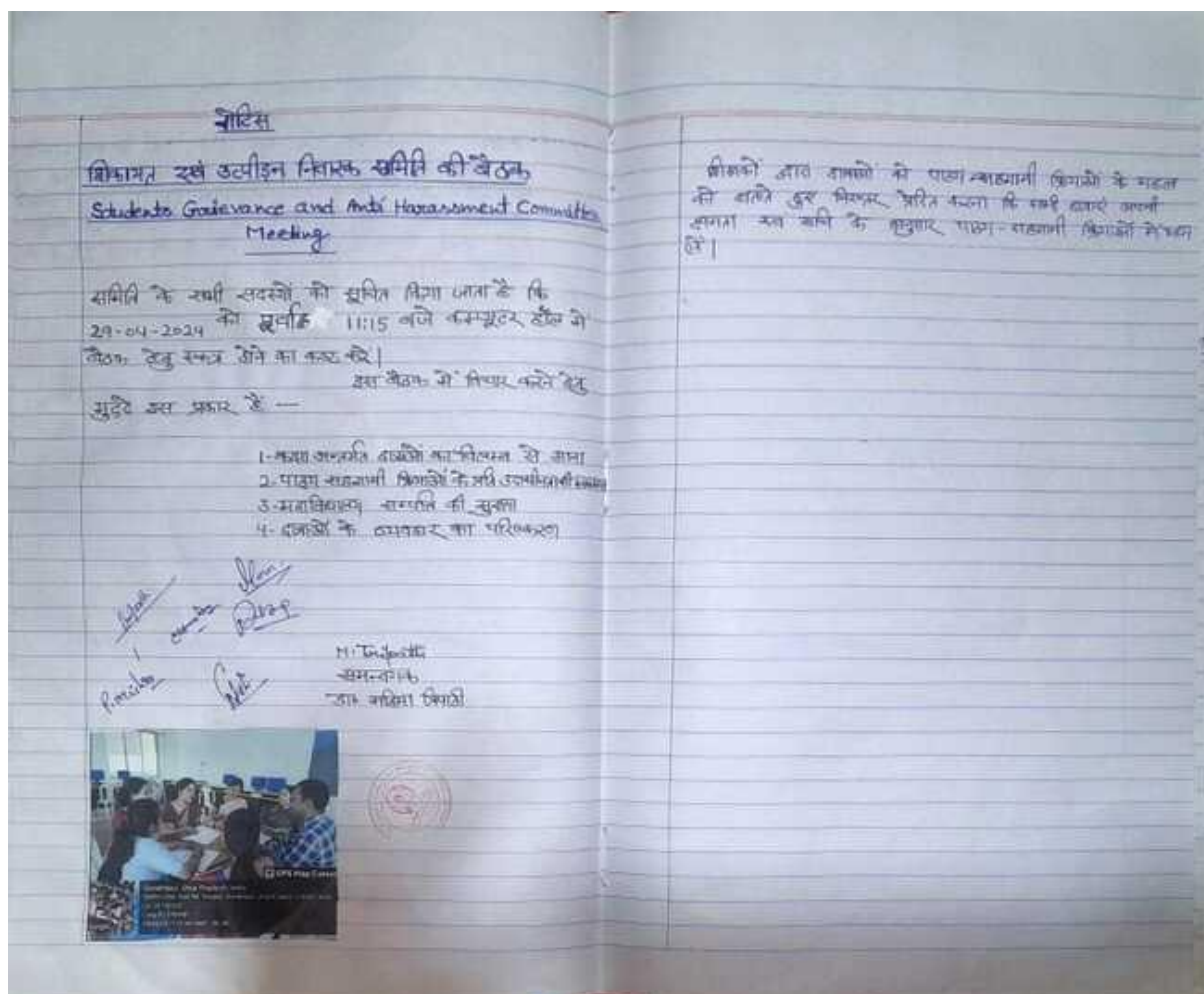 नोटिस
शिकायत एवं उत्पीड़न निवारक समिति की बैठक
Students Grievance and Anti Harassment Committee
Meeting
समिति के सभी सदस्यों को सूचित किया जाता है कि
29-04-2024 को पूर्वाह्न 11:15 बजे कम्प्यूटर हॉल में
बैठक हेतु एकत्र होने का कष्ट करें।
इस बैठक में विचार करने हेतु
मुद्दे इस प्रकार है —
1- कक्षा अन्तर्गत छात्राओं का विलम्ब से आना
2- पाठ्य सहगामी क्रियाओं के प्रति
3- महाविद्यालय सम्पत्ति की सुरक्षा
4- छात्राओं के व्यवहार का परिष्करण
P. mishra
M. Tripathi
समन्वयक
डा० त्रिपाठी
GPS Map Camera
शिक्षकों द्वारा छात्राओं को पाठ्य सहगामी क्रियाओं के महत्व
को बताते हुए निरन्तर प्रेरित करना कि सभी छात्राएं अपनी
क्षमता एवं रूचि के अनुसार पाठ्य-सहगामी क्रियाओं में